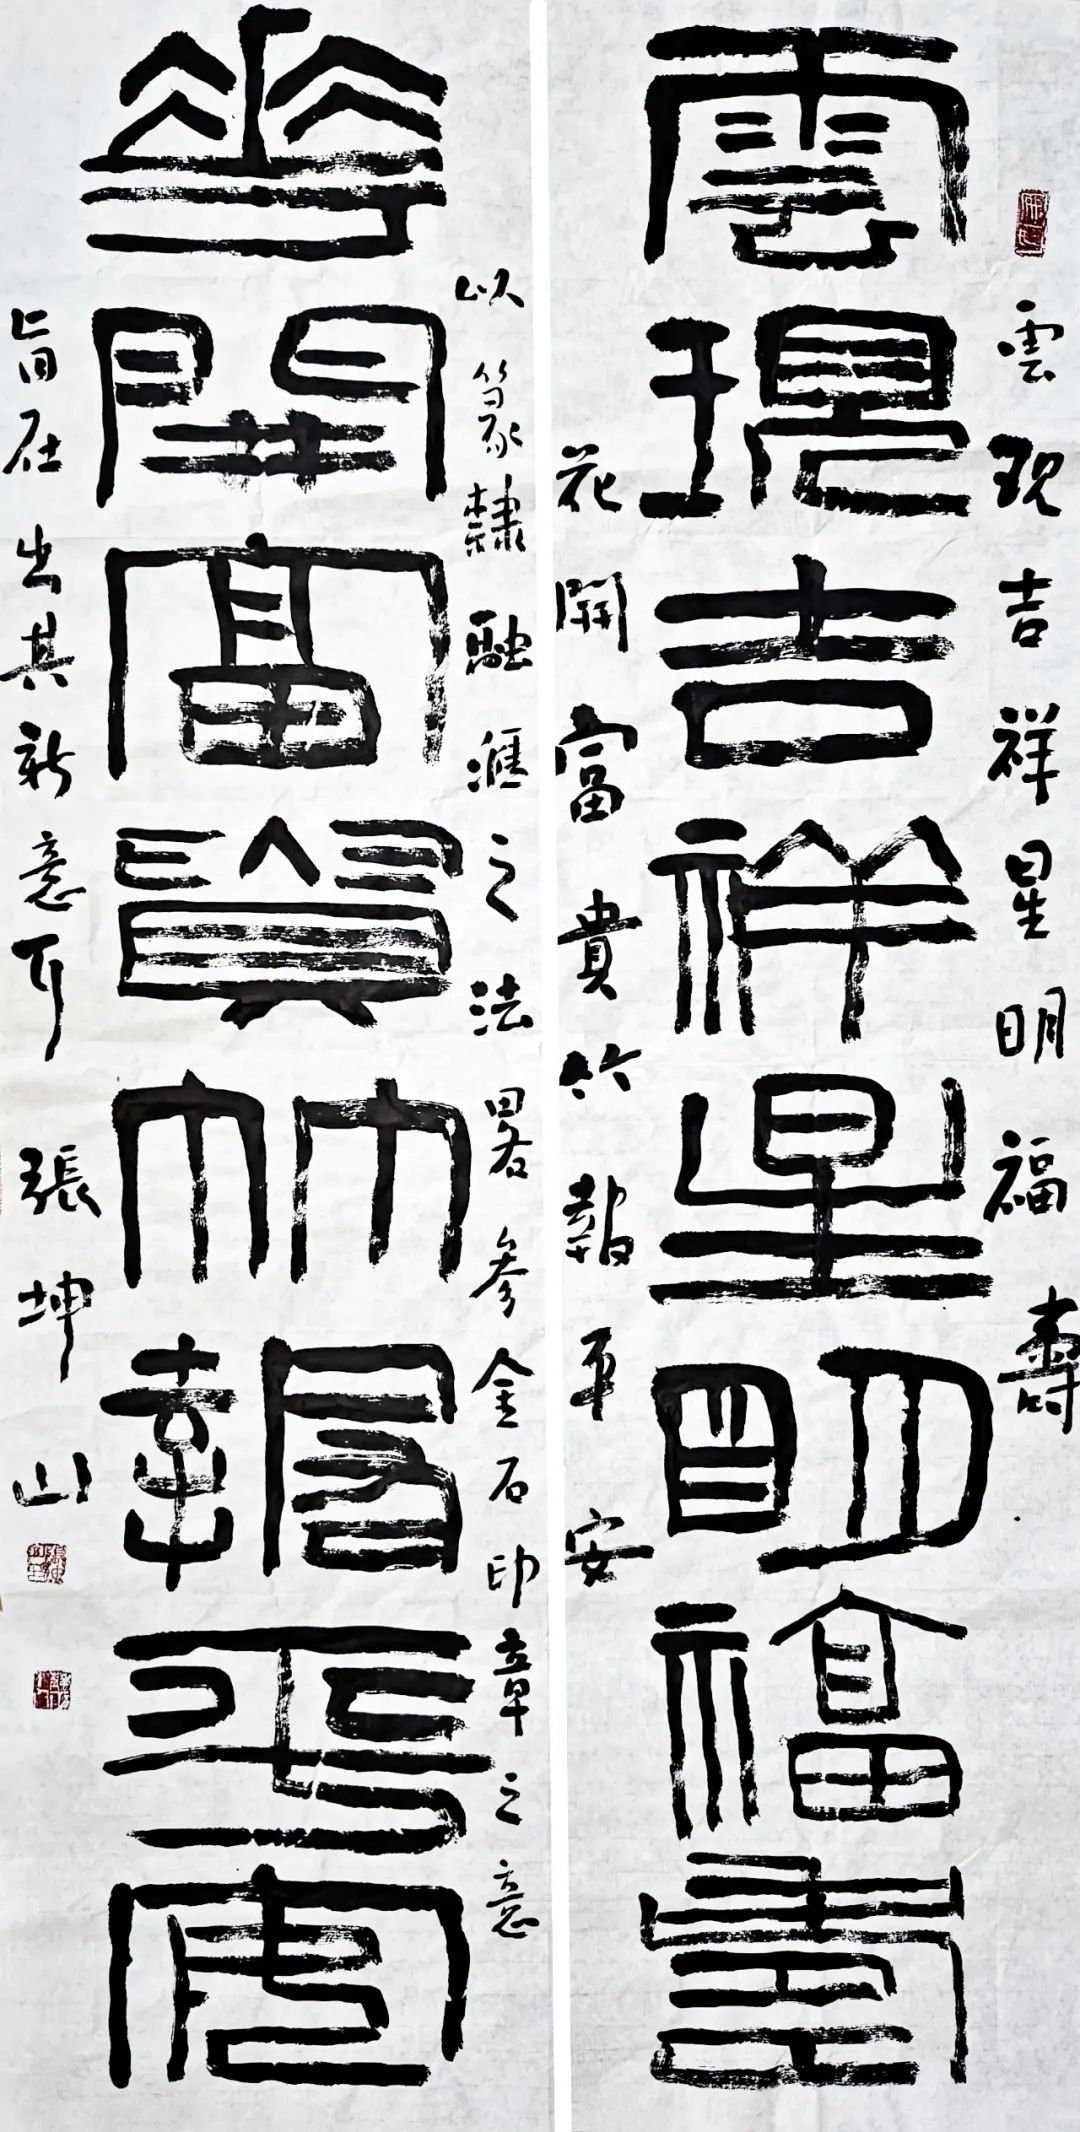 雲現吉祥星明福壽
雲現吉祥星明福壽
花開富貴竹報平安
華開富貴竹報平安
以篆隸融滙之法畧參金石印章之意
旨在出其新意耳 張坤山